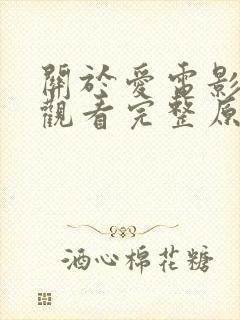 關於愛電影
觀看完整原
酒心棉花糖